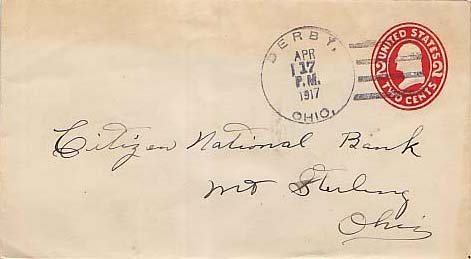 DERBY,
APR
17
P.M.
1917
OHIO.
UNITED STATES
2 2
TWO CENTS
Citizen National Bank
Mt Sterling
Ohio